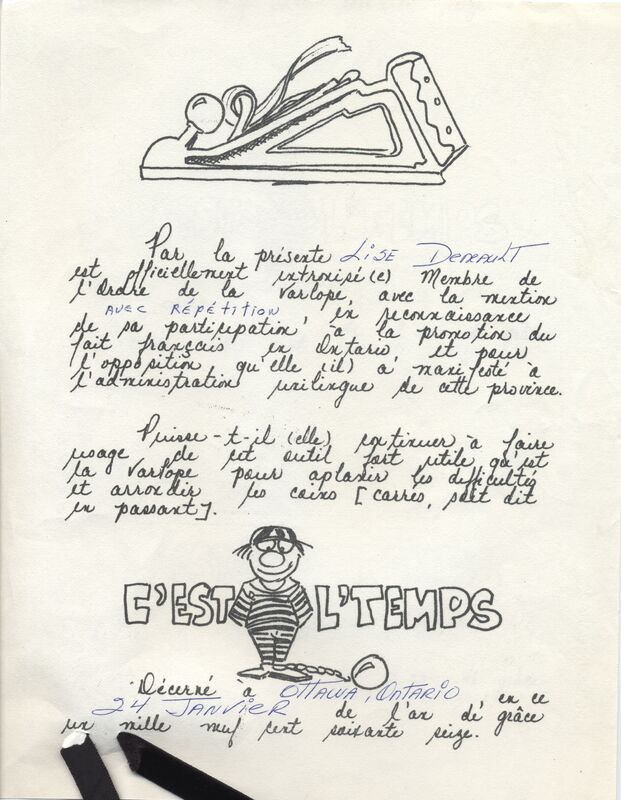 Par la présente Lise Deneault
est officiellement intronisé(e) Membre de
l'Ordre de la Varlope, avec la mention
AVEC RÉPÉTITION, en reconnaissance
de sa participation, à la promotion du
fait français en Ontario, et pour
l'opposition qu'elle (il) a manifesté à
l'administration unilingue de cette province.
Puisse-t-il (elle) continuer à faire
usage de cet outil fort utile qu'est
la Varlope pour aplanir les difficultés
et arrondir les coins [carrés, soit dit
en passant].
C'EST L'TEMPS
Décerné à OTTAWA, ONTARIO en ce
24 JANVIER de l'an de grâce
un mille neuf cent soixante seize.